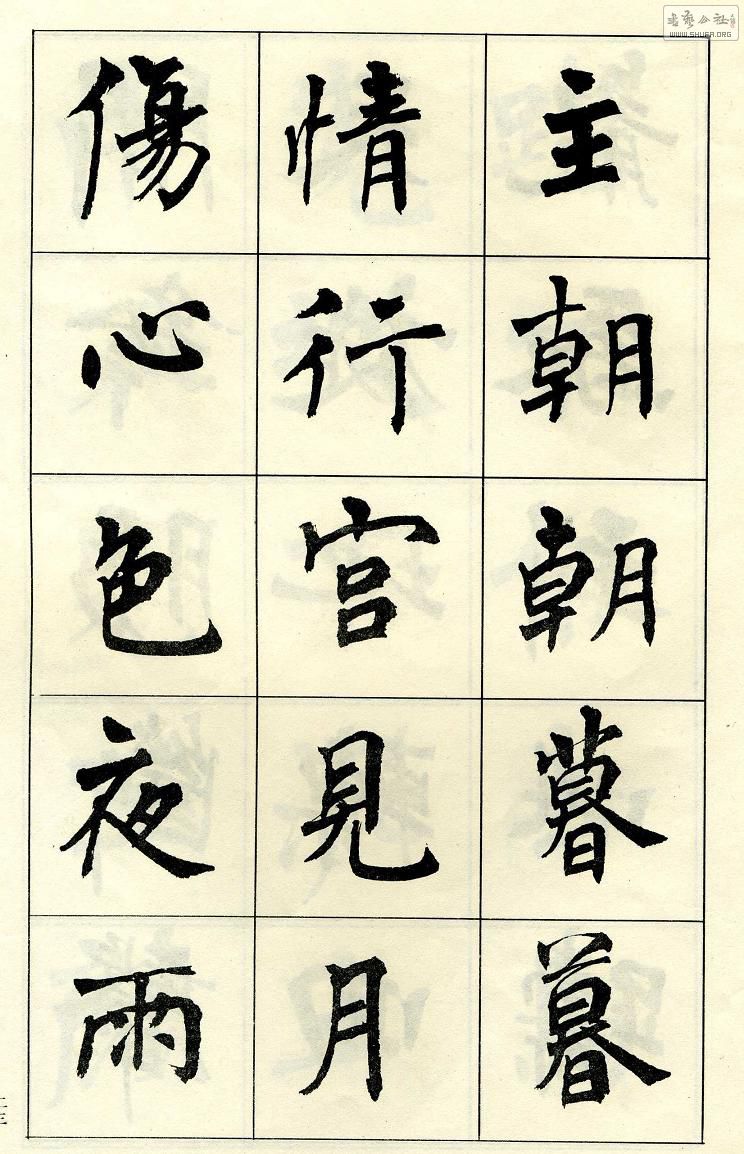 主朝朝暮暮
情行宮見月
傷心色夜雨
书艺公社
WWW.SHUFA.ORG
二三